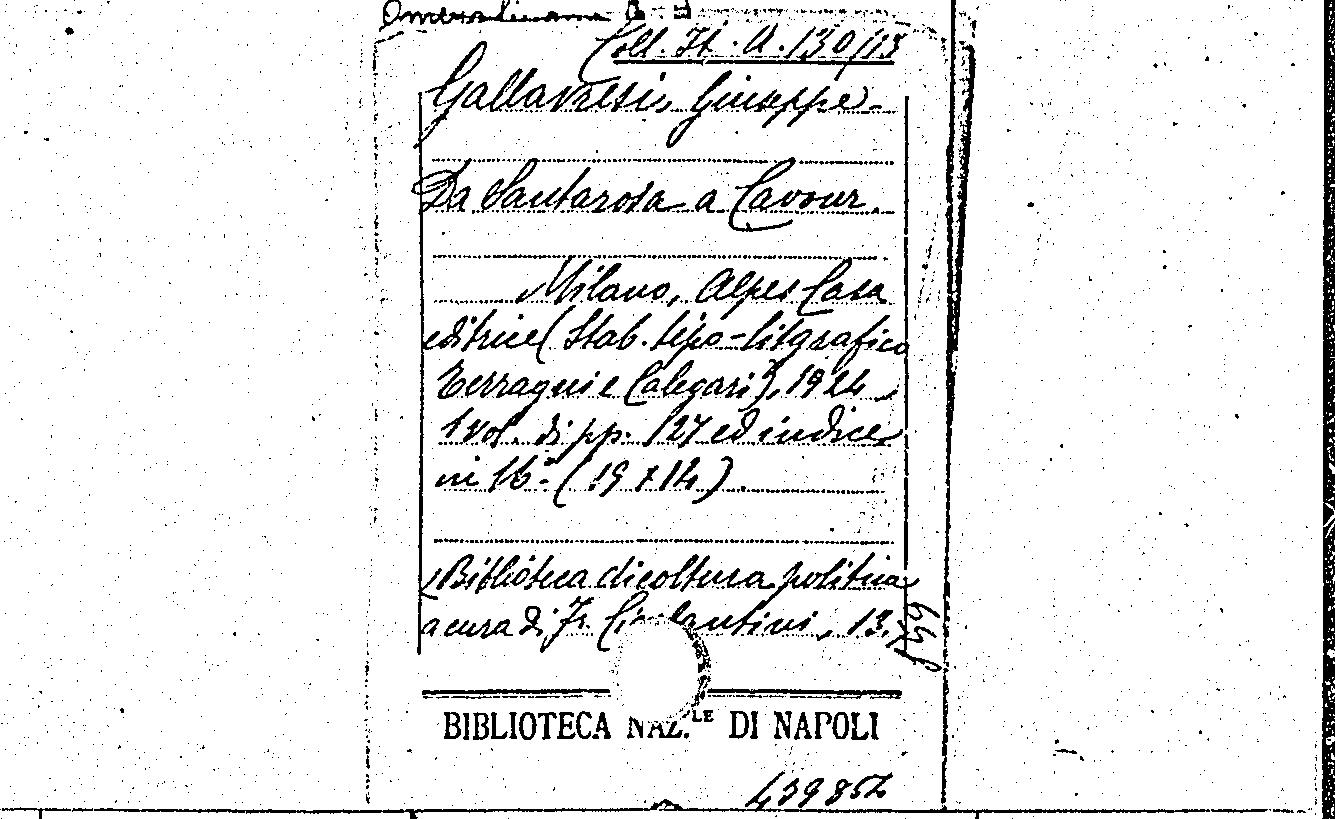 Coll. It. A. 130/13
Gallavresi, Giuseppe.
Da Santarosa a Cavour.
Milano, Alpes Casa
editrice (Stab. tipo-litgrafico
Terragni e Calegari), 1924
1 vol. di pp. 127 ed indice
in 16º (19 x 14).
(Biblioteca di coltura politica
a cura di Fr. Ciarlantini, 13.)
BIBLIOTECA NAZ.LE DI NAPOLI
439852